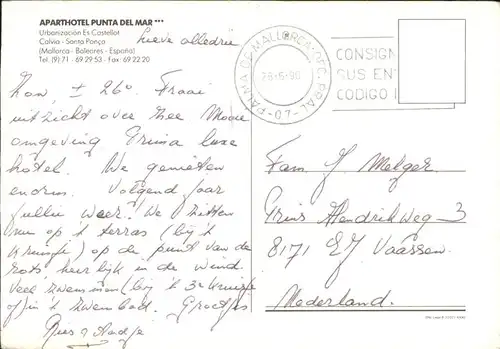 APARTHOTEL PUNTA DEL MAR ***
Urbanización Es Castellot
Calvia - Santa Ponça
(Mallorca - Baleares - España)
Tel. (9) 71 - 69 29 53 - Fax 69 22 20
Lieve allebei
± 26°. Fraai
uitzicht over zee Mooie
omgeving Prima luxe
hotel. We genieten
enorm. Volgend jaar
jullie weer! We zitten
nu op 't terras (bij 't
kruisje) op de punt van de
rots, heerlijk in de wind.
Veel zwemmen (bij 3e kruisje
of in 't zwembad. Groetjes
PALMA DE MALLORCA - OFC. PRAL - 07 -
CONSIGN
SUS EN
CODIGO
Fam. J. Metzger
Prins Hendrikweg 3
8171 EJ Vaassen.
Nederland.